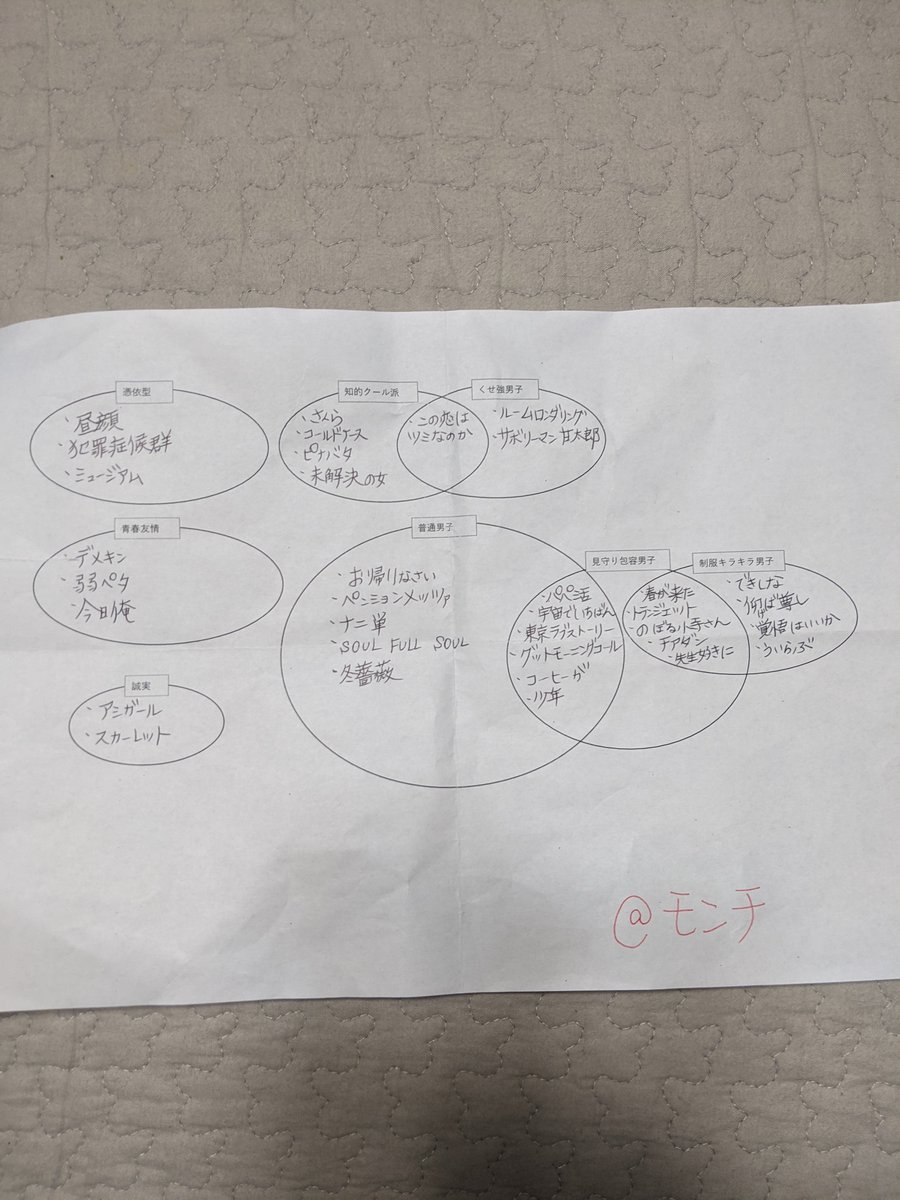 憑依型
・昼顔
・犯罪症候群
・ミュージアム
知的クール派
・さくら
・コールドケース
・ピナバタ
・未解決の女
・この恋は
ツミなのか
くせ強男子
・ルームロンダリング
・サボリーマン甘太郎
青春友情
・デメキン
・弱ペダ
・今日俺
誠実
・アシガール
・スカーレット
普通男子
・お帰りなさい
・ペンションメッツァ
・ナニ単
・SOUL FULL SOUL
・冬薔薇
見守り包容男子
・パペ活
・宇宙でいちばん
・東京ラブストーリー
・グットモーニングコール
・コーヒーが
・少年
制服キラキラ男子
・春が来た
・トランジェット
・のぼる小寺さん
・チアダン
・先生好きに
・できしな
・仰げば尊し
・覚悟はいいか
・ういらぶ
@モンチ